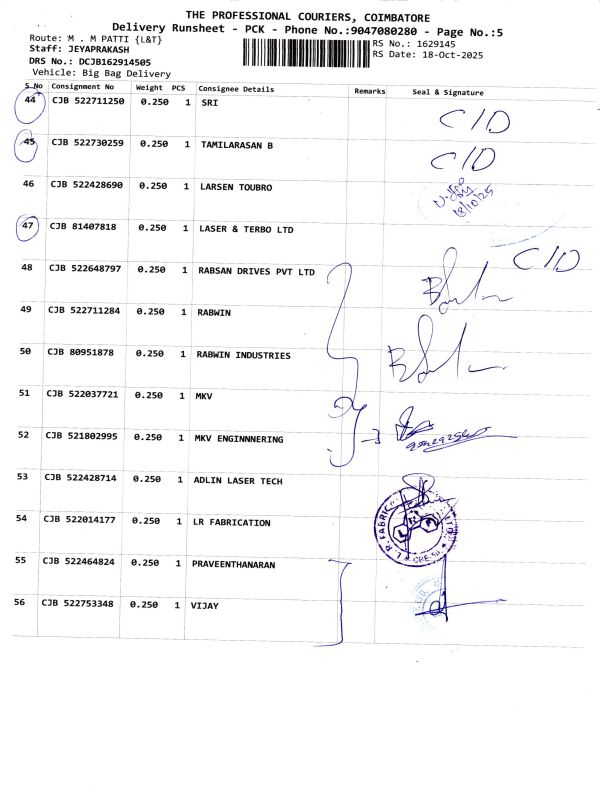 THE PROFESSIONAL COURIERS, COIMBATORE
Delivery Runsheet - PCK - Phone No.:9047080280 - Page No.:5
Route: M . M PATTI {L&T}
RS No.: 1629145
Staff: JEYAPRAKASH
RS Date: 18-Oct-2025
DRS No.: DCJB162914505
Vehicle: Big Bag Delivery
S No Consignment No Weight PCS Consignee Details Remarks Seal & Signature
44 CJB 522711250 0.250 1 SRI C/D
45 CJB 522730259 0.250 1 TAMILARASAN B C/D
46 CJB 522428690 0.250 1 LARSEN TOUBRO
18/10/25
47 CJB 81407818 0.250 1 LASER & TERBO LTD C/D
48 CJB 522648797 0.250 1 RABSAN DRIVES PVT LTD
49 CJB 522711284 0.250 1 RABWIN
50 CJB 80951878 0.250 1 RABWIN INDUSTRIES
51 CJB 522037721 0.250 1 MKV
52 CJB 521802995 0.250 1 MKV ENGINNNERING
53 CJB 522428714 0.250 1 ADLIN LASER TECH
54 CJB 522014177 0.250 1 LR FABRICATION
55 CJB 522464824 0.250 1 PRAVEENTHANARAN
56 CJB 522753348 0.250 1 VIJAY